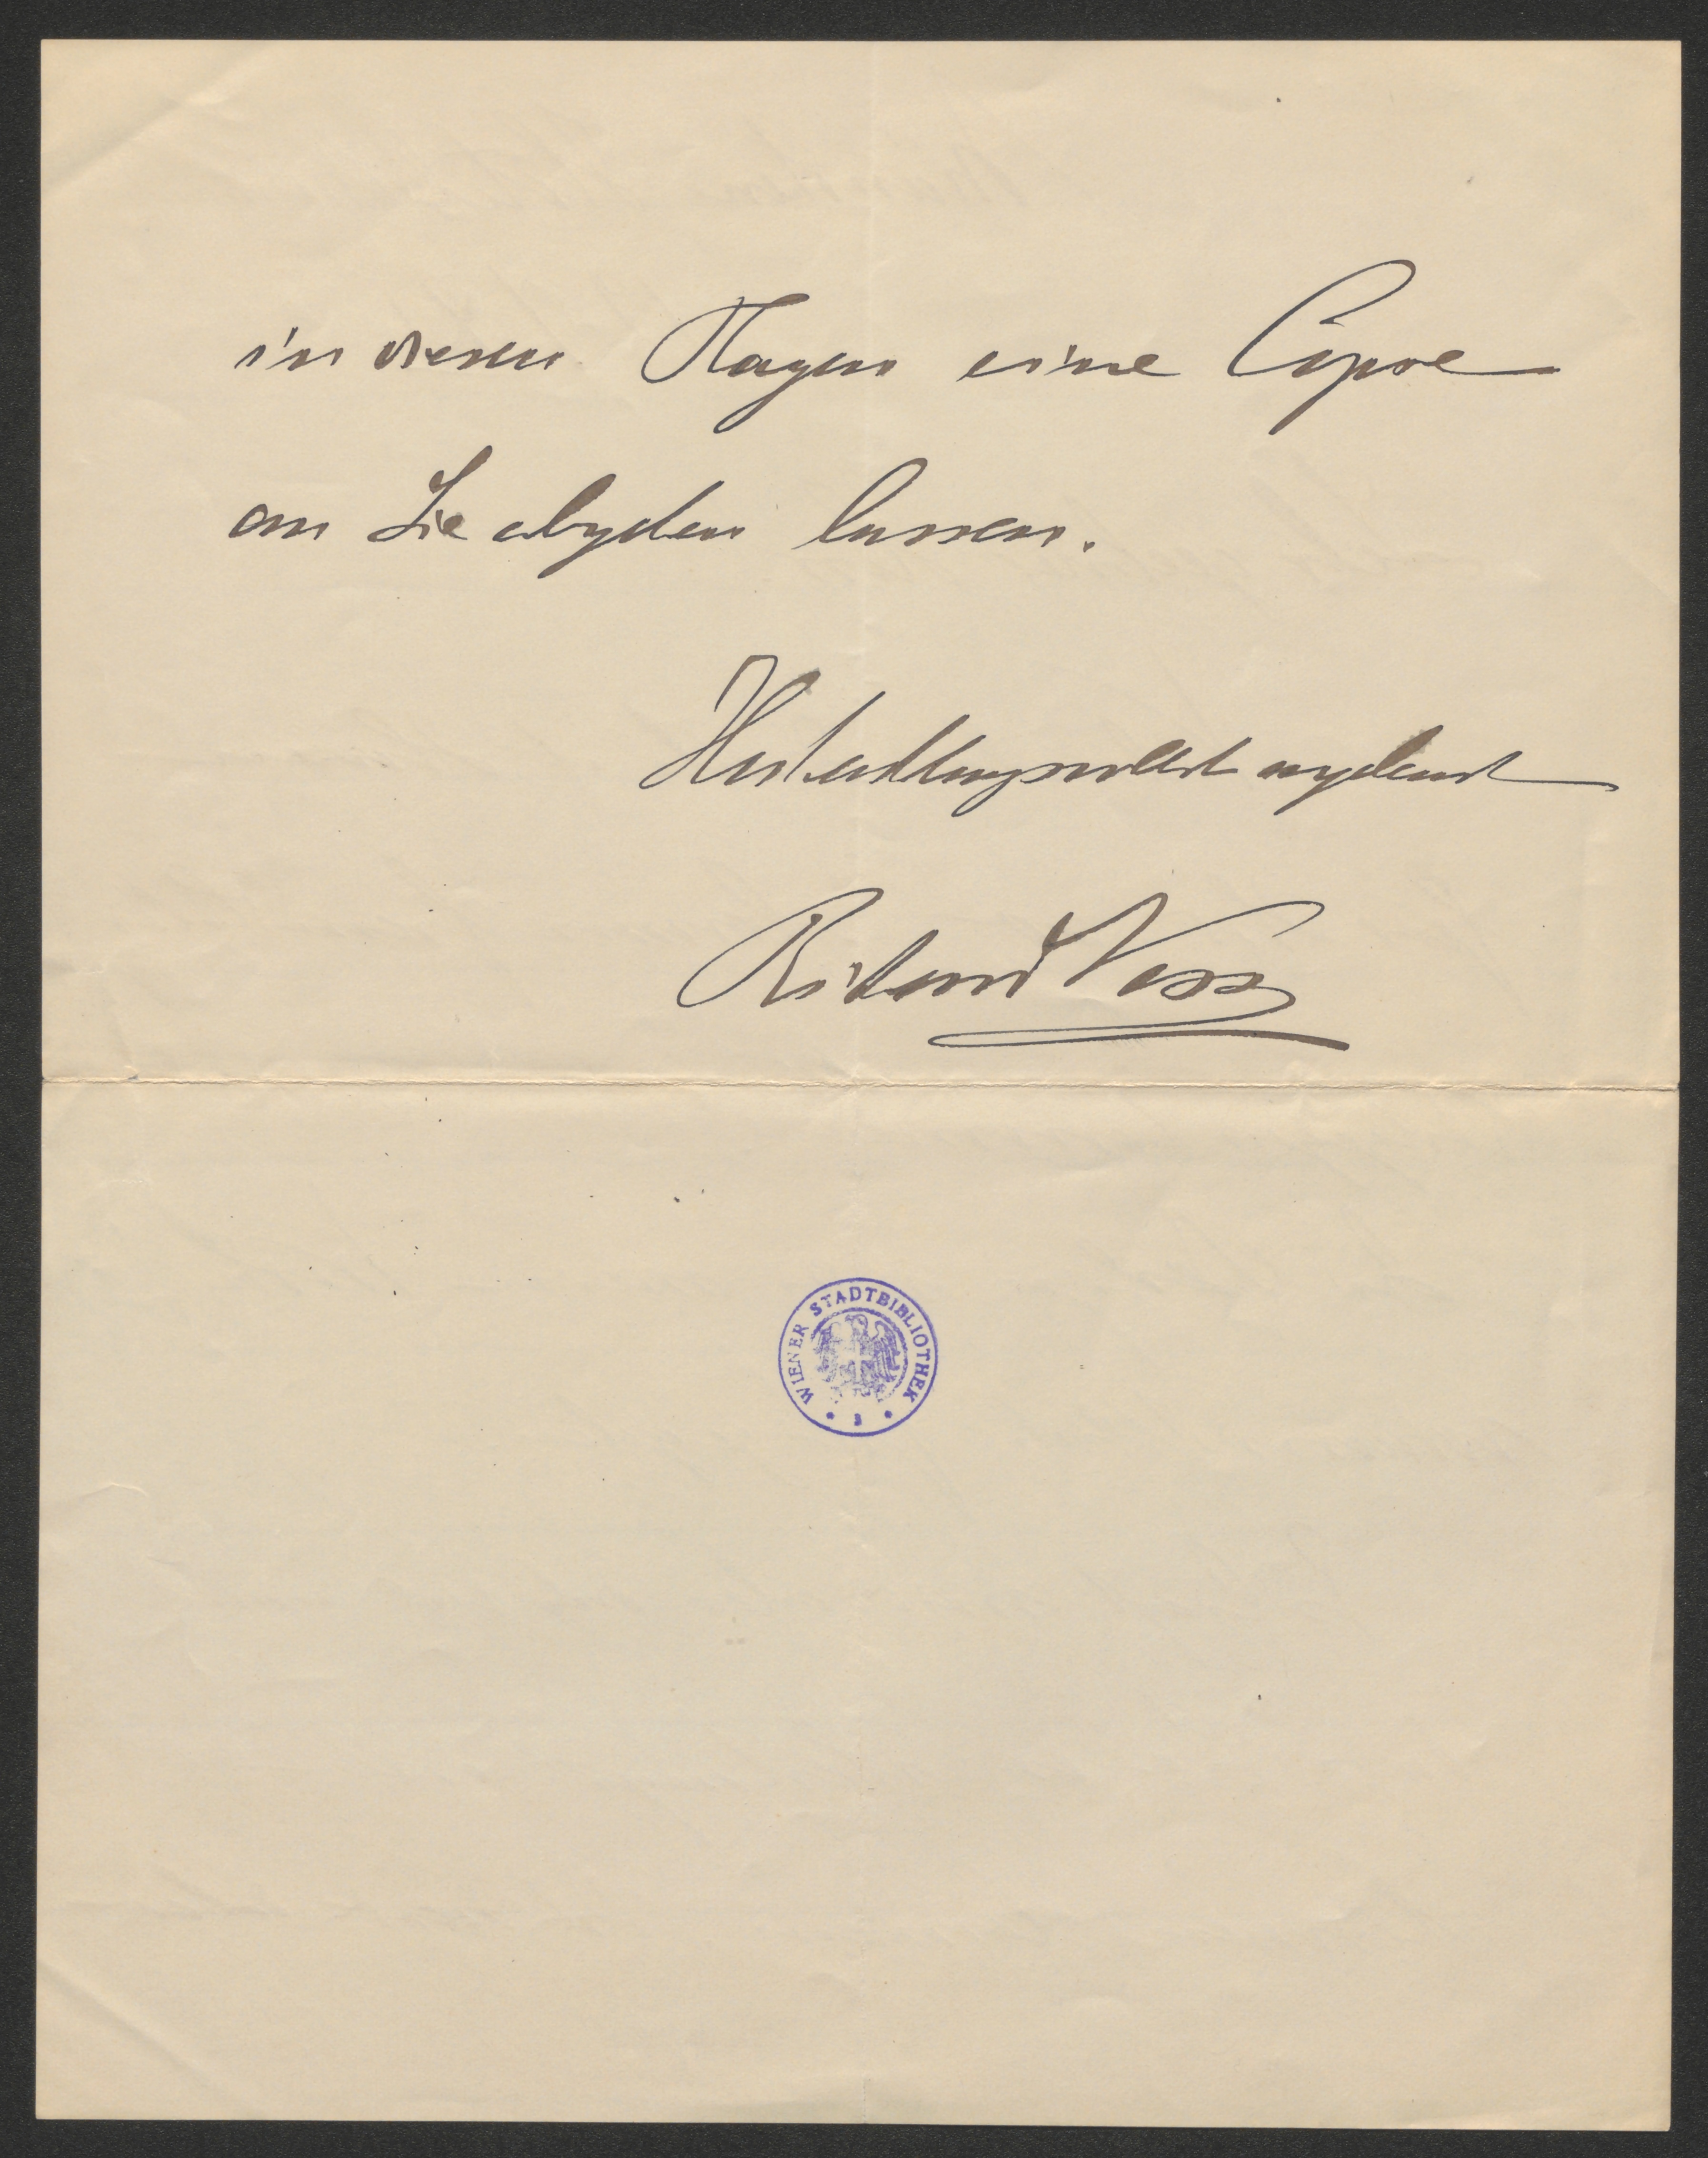 in diesen Tagen eine Copie
an Sie abgehen lassen.
Hochachtungsvollst ergebenst
Richard Voss
WIENER STADTBIBLIOTHEK